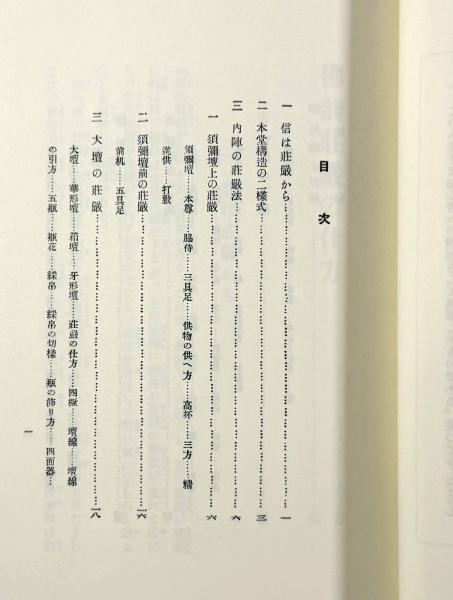 目次
一 信は莊嚴から……………………一
二 本堂構造の二樣式……………………三
三 內陣の莊嚴法……………………六
一 須彌壇上の莊嚴……………………六
須彌壇……本尊……脇侍……三具足……供物の供へ方……高坏……三方……精
進供……打敷
二 須彌壇前の莊嚴……………………一六
前机……五具足
三 大壇の莊嚴……………………一八
大壇……華形壇……箱壇……牙形壇……莊嚴の仕方……四橛……壇線……壇線
の引方……五瓶……瓶花……綵帛……綵帛の切樣……瓶の飾り方……四面器…
一